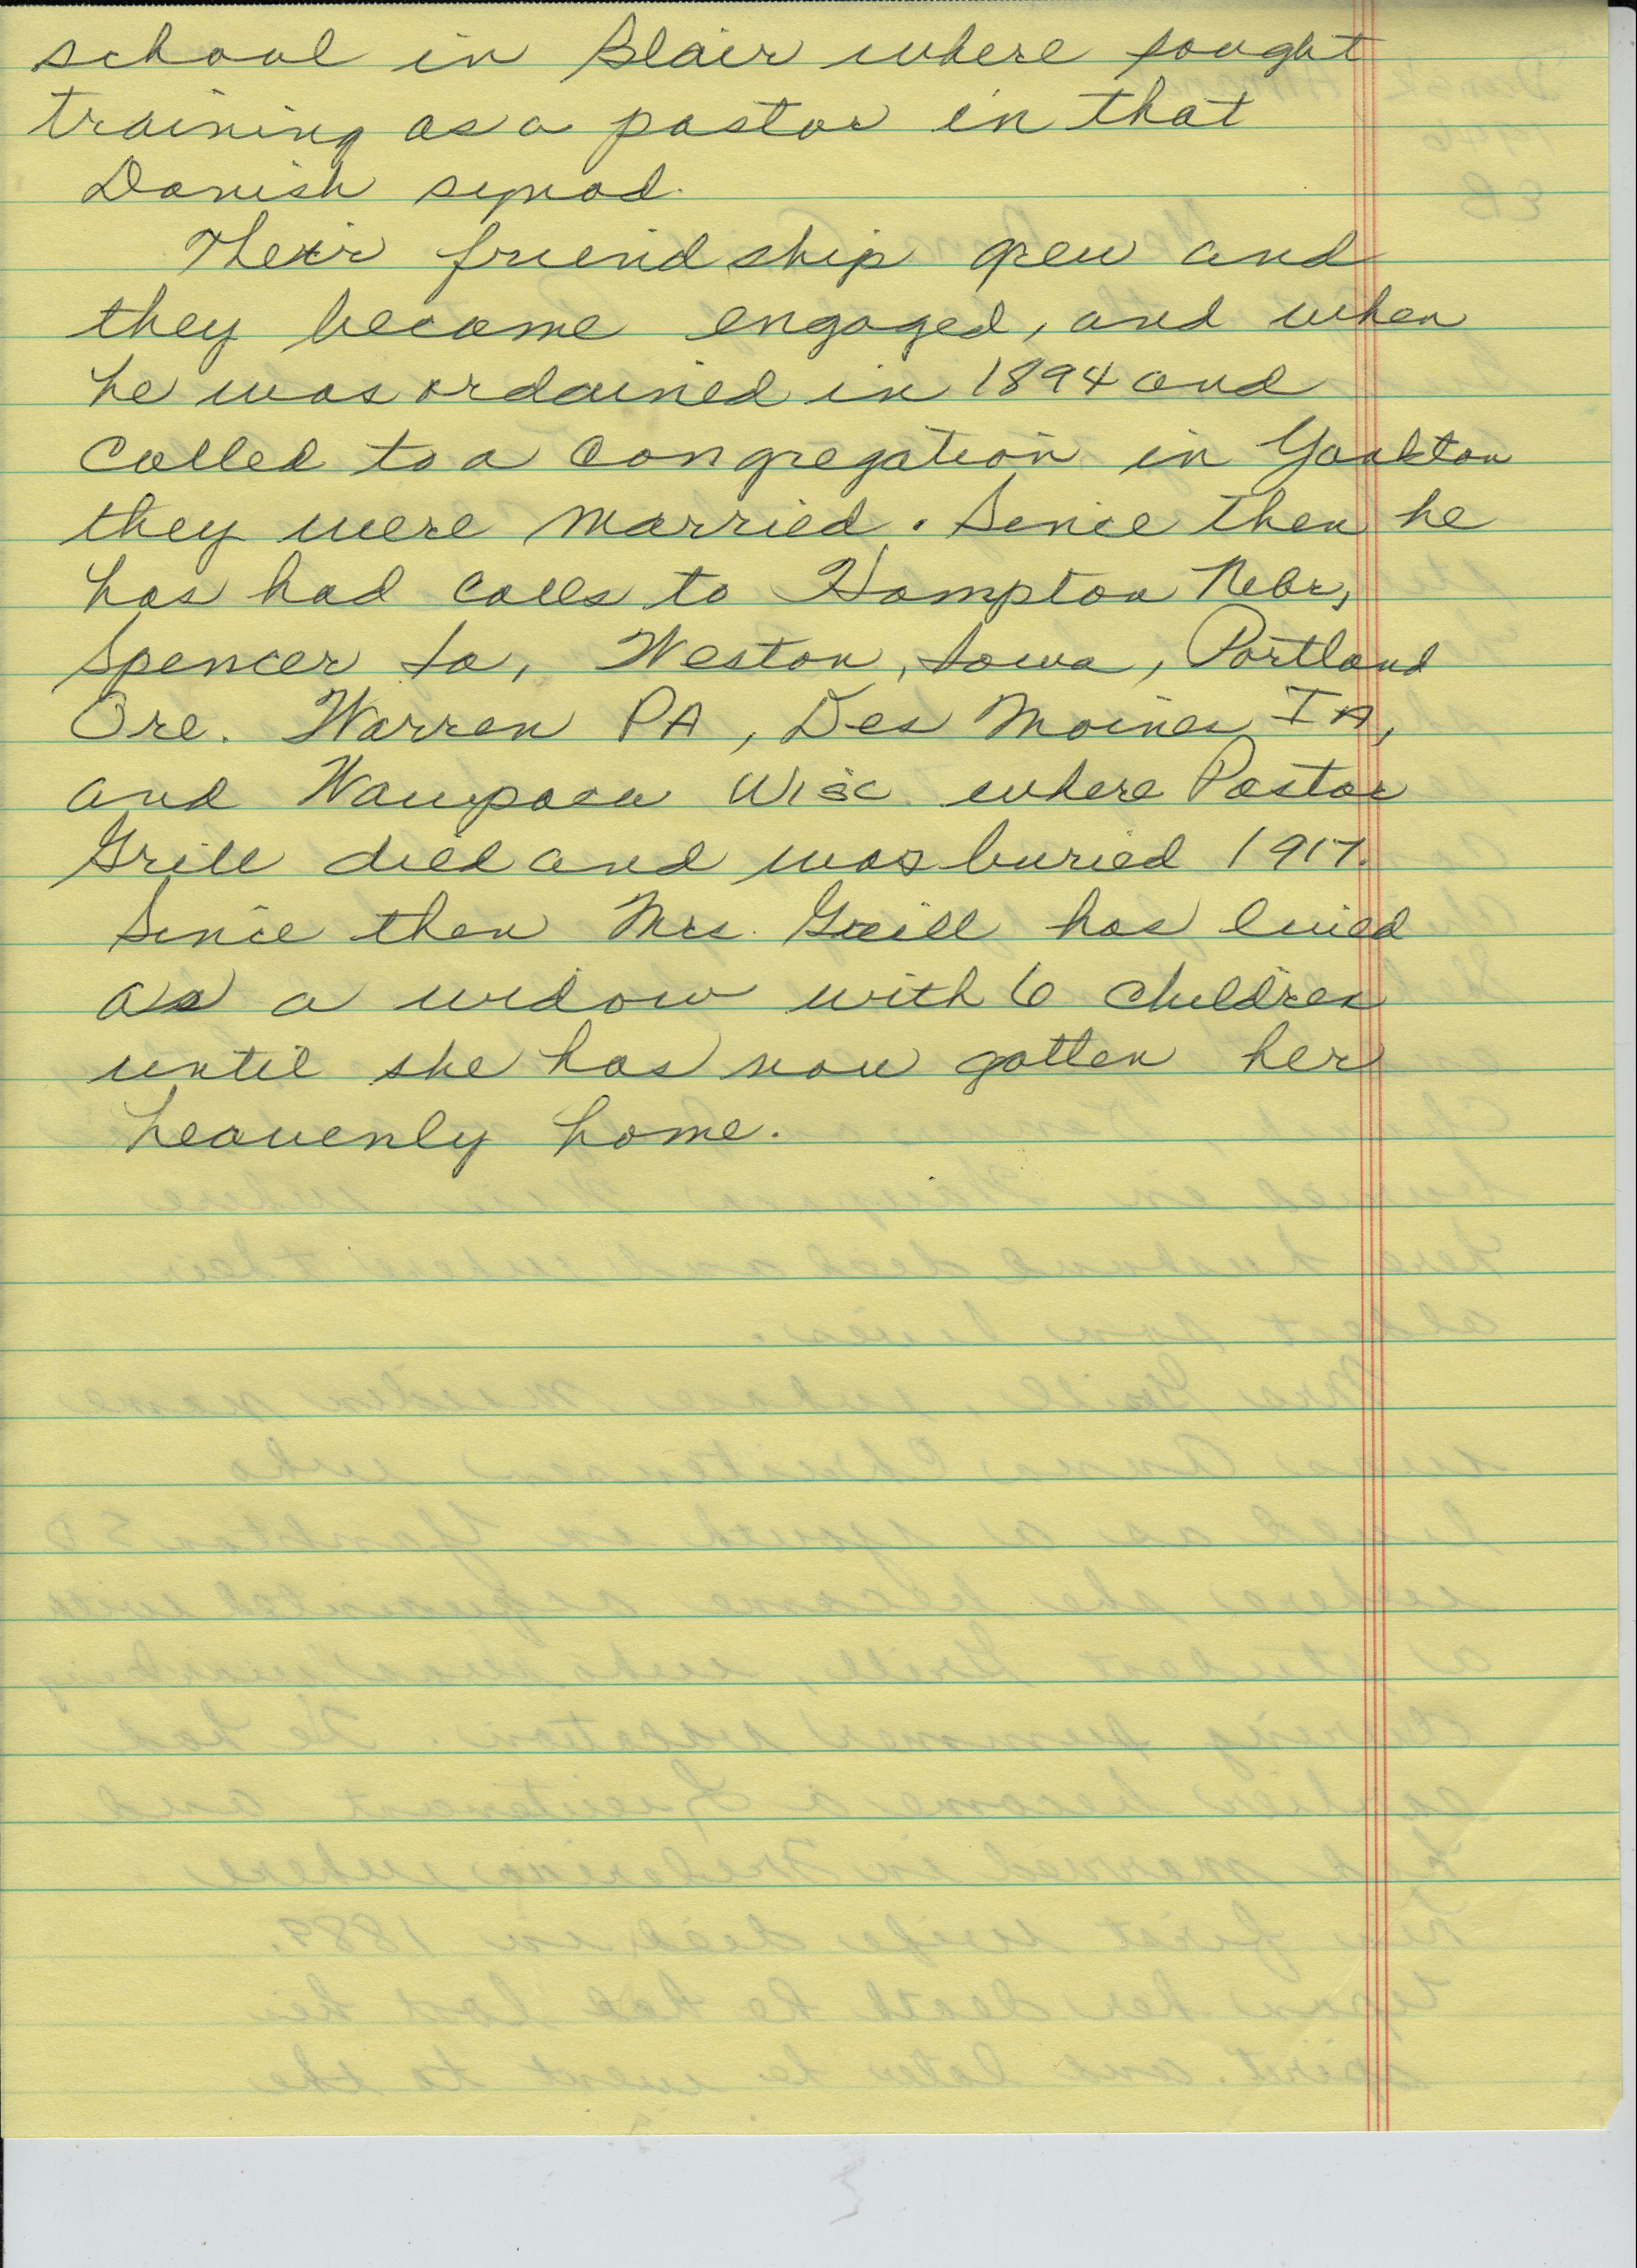 school in Blair where sought
training as a pastor in that
Danish synod.
Their friendship grew and
they became engaged, and when
he was ordained in 1894 and
called to a congregation in Yankton
they were married. Since then he
has had calls to Hampton Nebr,
Spencer Ia, Weston, Iowa, Portland
Ore. Warren PA, Des Moines IA,
and Waupaca Wisc. where Pastor
Grill died and was buried 1917.
Since then Mrs. Grill has lived
as a widow with 6 children
until she has now gotten her
heavenly home.